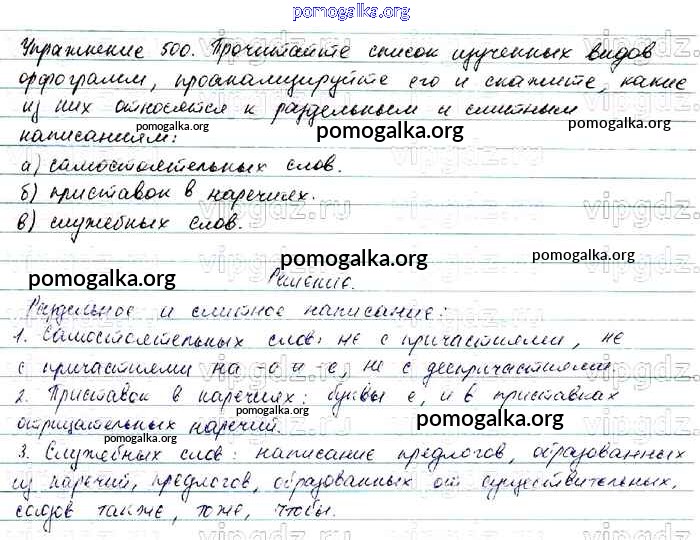 pomogalka.org
Упражнение 500. Прочитайте список изученных видов
орфограмм, проанализируйте его и скажите, какие
из них относятся к раздельным и слитным
написаниям:
pomogalka.org pomogalka.org pomogalka.org
а) самостоятельных слов.
б) приставок в наречиях.
в) служебных слов.
pomogalka.org pomogalka.org pomogalka.org
Решение.
Раздельное и слитное написание:
1. Самостоятельных слов: не с причастиями, не
с причастиями на -о и -е, не с деепричастиями.
2. Приставок в наречиях: буквы е, и в приставках
отрицательных наречий.
pomogalka.org pomogalka.org pomogalka.org
3. Служебных слов: написание предлогов, образованных
из наречий, предлогов, образованных от существительных,
союзов также, тоже, чтобы.
pomogalka.org pomogalka.org
vipgdz.ru